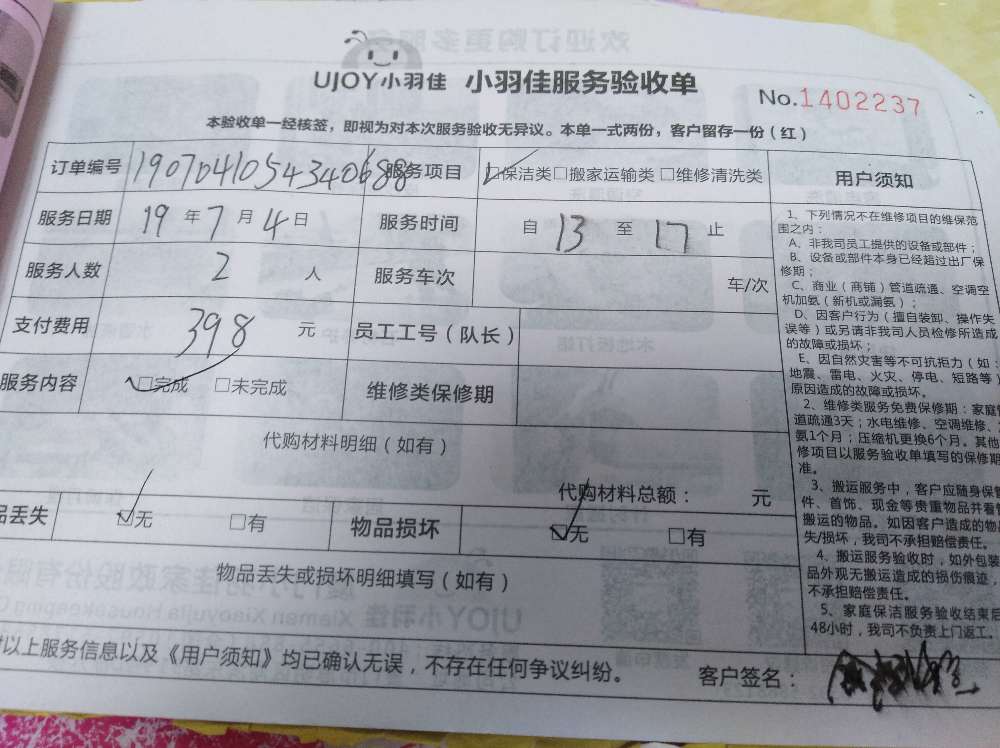 UJOY小羽佳 小羽佳服务验收单
No.1402237
本验收单一经核签，即视为对本次服务验收无异议。本单一式两份，客户留存一份（红）
订单编号 1907041054340688 服务项目 □保洁类□搬家运输类□维修清洗类
服务日期 19 年 7 月 4 日 服务时间 自 13 至 17 止
服务人数 2 人 服务车次 车/次
支付费用 398 元 员工工号（队长）
服务内容 □完成 □未完成 维修类保修期
代购材料明细（如有）
代购材料总额： 元
品丢失 □无 □有 物品损坏 □无 □有
物品丢失或损坏明细填写（如有）
以上服务信息以及《用户须知》均已确认无误，不存在任何争议纠纷。
客户签名：
用户须知
1、下列情况不在维修项目的维保范
围之内：
A、非我司员工提供的设备或部件；
B、设备或部件本身已经超过出厂保
修期；
C、商业（商铺）管道疏通、空调空
机加氨（新机或漏氨）；
D、因客户行为（擅自装卸、操作失
误等）或另请非我司人员检修所造成
的故障或损坏；
E、因自然灾害等不可抗拒力（如：
地震、雷电、火灾、停电、短路等）
原因造成的故障或损坏。
2、维修类服务免费保修期：家庭
道疏通3天；水电维修、空调维修、
氨1个月；压缩机更换6个月。其他
修项目以服务验收单填写的保修期
准。
3、搬运服务中，客户应随身保管
件、首饰、现金等贵重物品并看
搬运的物品。如因客户造成的物
失/损坏，我司不承担赔偿责任。
4、搬运服务验收时，如外包装
品外观无搬运造成的损伤痕迹，
不承担赔偿责任。
5、家庭保洁服务验收结束后
48小时，我司不负责上门返工。